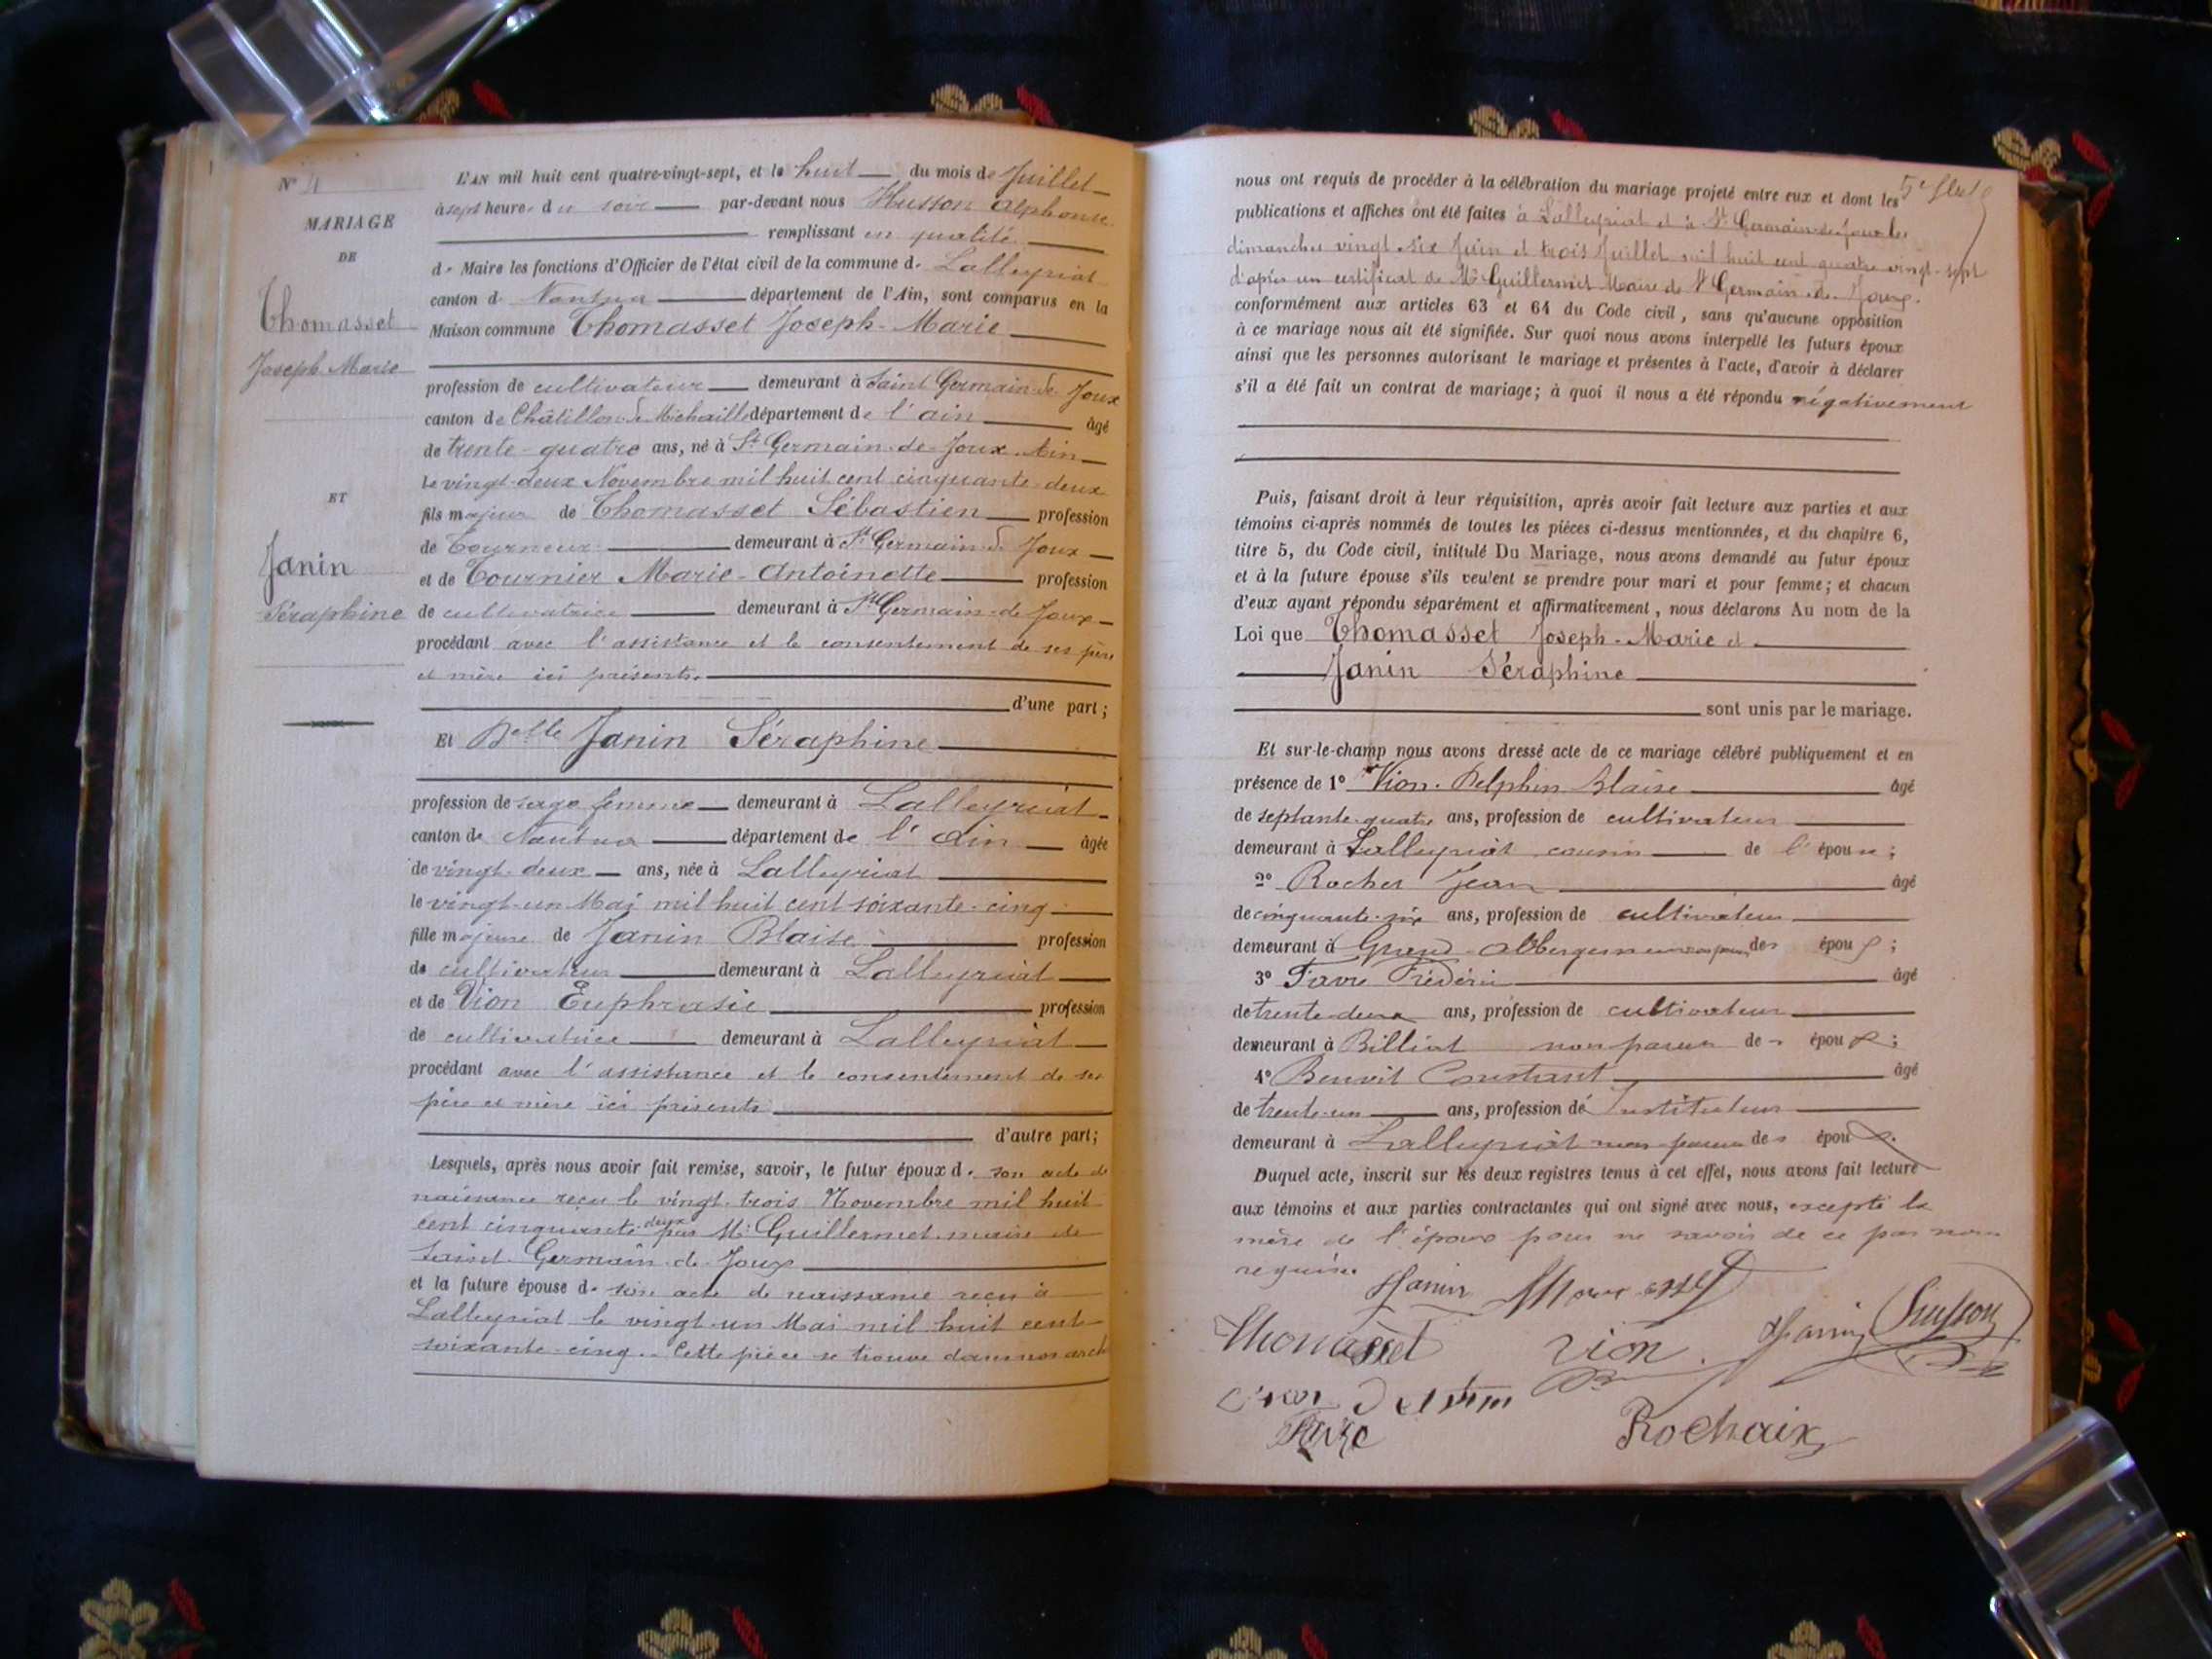 N° 4
MARIAGE
DE
Thomasset
Joseph Marie
ET
Janin
Séraphine
L'AN mil huit cent quatre-vingt-sept, et le huit du mois de Juillet
à sept heures du soir par-devant nous Husson Alphonse
remplissant en qualité
de Maire les fonctions d'Officier de l'état civil de la commune de Lalleyriat
canton de Nantua département de l'Ain, sont comparus en la
Maison commune Thomasset Joseph-Marie
profession de cultivateur demeurant à Saint Germain de Joux
canton de Châtillon de Michaille département de l'ain âgé
de trente-quatre ans, né à St Germain-de-Joux Ain
le vingt-deux Novembre mil huit cent cinquante-deux
fils majeur de Thomasset Sébastien profession
de Tourneur demeurant à St Germain de Joux
et de Tournier Marie-Antoinette profession
de cultivatrice demeurant à St Germain-de Joux
procédant avec l'assistance et le consentement de ses père
et mère ici présents.
d'une part;
Et Delle Janin Séraphine
profession de sage femme demeurant à Lalleyriat
canton de Nantua département de l'Ain âgée
de vingt-deux ans, née à Lalleyriat
le vingt-un Mai mil huit cent soixante-cinq
fille majeure de Janin Blaise profession
de cultivateur demeurant à Lalleyriat
et de Vion Euphrasie profession
de cultivatrice demeurant à Lalleyriat
procédant avec l'assistance et le consentement de ses
père et mère ici présents
d'autre part;
Lesquels, après nous avoir fait remise, savoir, le futur époux de son acte de
naissance reçu le vingt-trois Novembre mil huit
cent cinquante-deux par Mr Guillermet, maire de
Saint-Germain-de-Joux
et la future épouse de son acte de naissance reçu à
Lalleyriat le vingt-un Mai mil huit cent
soixante-cinq. Cette pièce se trouve dans nos arch
nous ont requis de procéder à la célébration du mariage projeté entre eux et dont les
publications et affiches ont été faites à Lalleyriat et à St Germain-de-Joux les
dimanches vingt-six Juin et trois Juillet mil huit cent quatre vingt-sept
d'après un certificat de Mr Guillermet Maire de St Germain-de-Joux.
conformément aux articles 63 et 64 du Code civil, sans qu'aucune opposition
à ce mariage nous ait été signifiée. Sur quoi nous avons interpellé les futurs époux
ainsi que les personnes autorisant le mariage et présentes à l'acte, d'avoir à déclarer
s'il a été fait un contrat de mariage; à quoi il nous a été répondu négativement
Puis, faisant droit à leur réquisition, après avoir fait lecture aux parties et aux
témoins ci-après nommés de toutes les pièces ci-dessus mentionnées, et du chapitre 6,
titre 5, du Code civil, intitulé Du Mariage, nous avons demandé au futur époux
et à la future épouse s'ils veulent se prendre pour mari et pour femme; et chacun
d'eux ayant répondu séparément et affirmativement, nous déclarons Au nom de la
Loi que Thomasset Joseph-Marie et
Janin Séraphine
sont unis par le mariage.
Et sur-le-champ nous avons dressé acte de ce mariage célébré publiquement et en
présence de 1° Vion-Delphin Blaise âgé
de septante-quatre ans, profession de cultivateur
demeurant à Lalleyriat cousin de l'épouse;
2° Rochex Jean âgé
de cinquante-six ans, profession de cultivateur
demeurant à Grand-Abbergement des époux;
3° Favre Frédéric âgé
de trente-deux ans, profession de cultivateur
demeurant à Billiat non parent des époux;
4° Benoit Constant âgé
de trente-un ans, profession de Instituteur
demeurant à Lalleyriat non parent des époux.
Duquel acte, inscrit sur les deux registres tenus à cet effet, nous avons fait lecture
aux témoins et aux parties contractantes qui ont signé avec nous, excepté la
mère de l'époux pour ne savoir de ce par nous
requise.
Janin
Thomasset Vion Janin Husson
Vion Delphin
Favre Rochaix